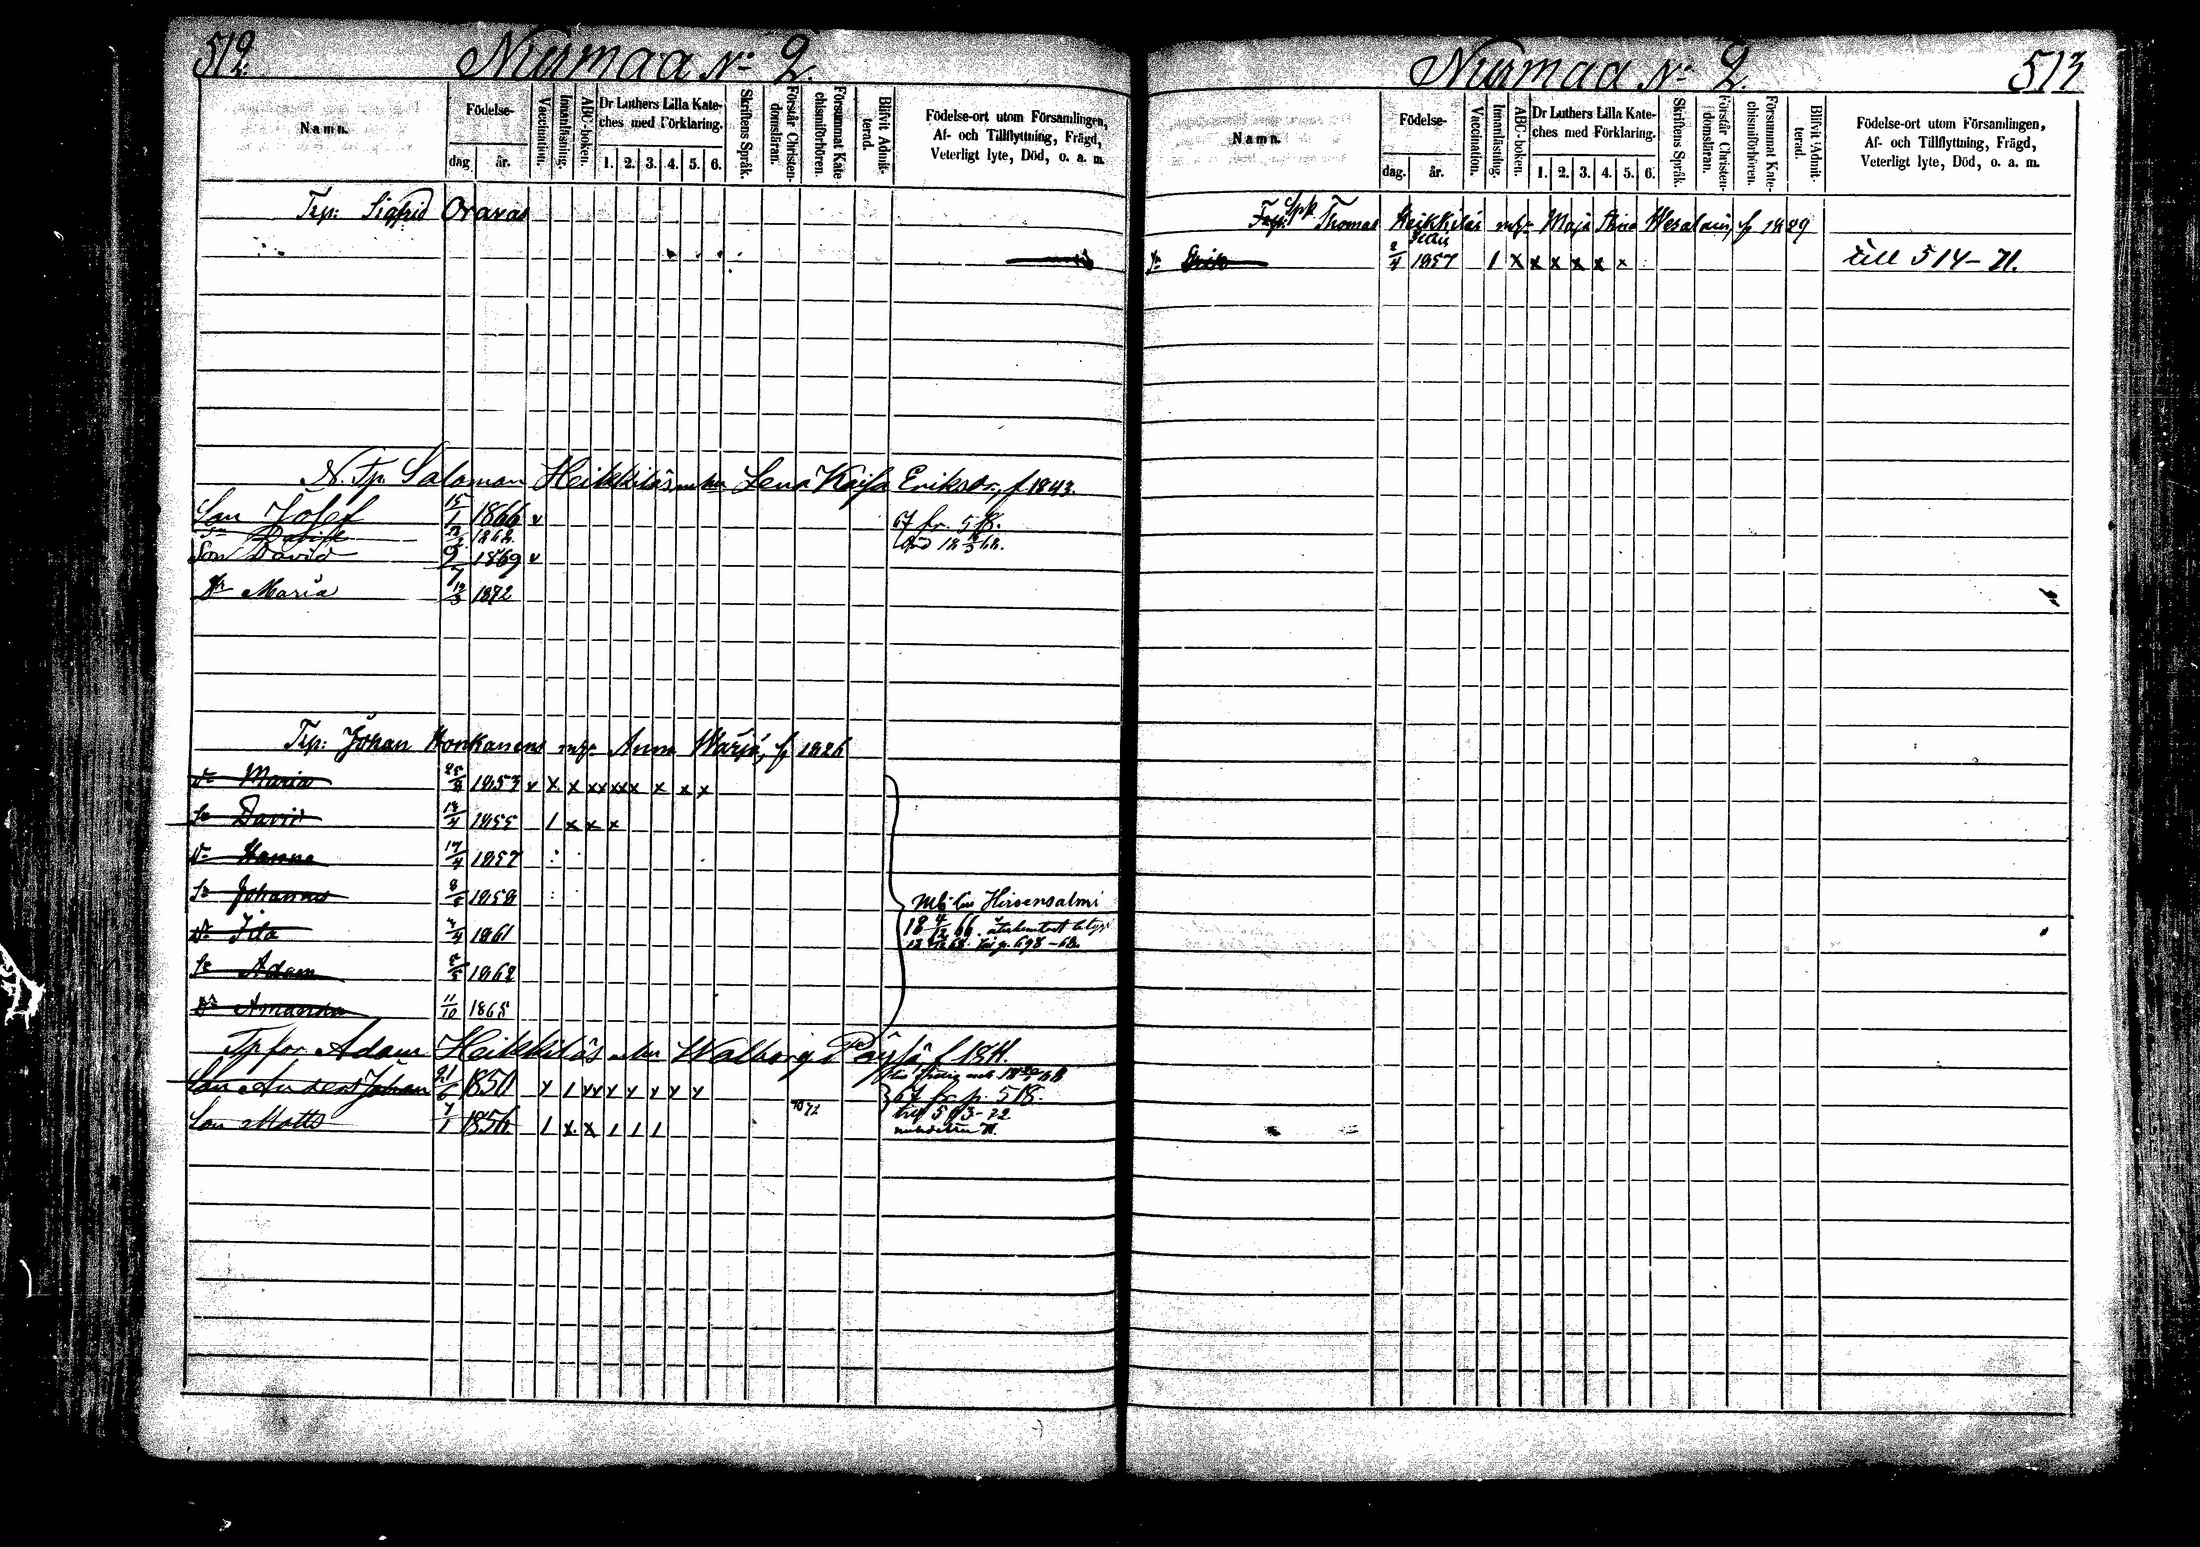 512.
Nurmaa No 2.
Namn.
Födelse-
dag
år.
Vaccination.
Innanläsning.
ABC-boken.
Dr Luthers Lilla Kate-
ches med Förklaring.
1. 2. 3. 4. 5. 6.
Skriftens Språk.
Förstår Christen-
domsläran.
Försummat Kate-
chismiförhören.
Blifvit Admit-
terad.
Födelse-ort utom Församlingen,
Af- och Tillflyttning, Frägd,
Veterligt lyte, Död, o. a. m.
Trp: Sigfrid Oravas
N. Tp. Saloman Heikkiläs m hu Lena Kaisa Eriksdr, f 1843.
Son Josef 15/1 1866 v 67 fr. 518.
1868
Son David 9/7 1869 v
Dr Maria 1872
Trp: Johan Honkanens Anna f 1826
Dr Maria 1853 v x x xx xxx x x x
Sn David 1855 1 x x x
Dr Hanna 17/4 1857
Sn Johannes 1859
Dr 1861
Sn Adam 1862
Dr Amanda 11/10 1865
Hirvensalmi
Tp for Adam Heikkiläs Walborg f 1811.
Son Anders Johan 21/6 1850 v 1 vv v v v v v 67 fr p. 518.
till 513-72
Son Matts 7/1 1856 1 x x 1 1 1
513
Nurmaa No 2.
Namn.
Födelse-
dag.
år.
Vaccination.
Innanläsning.
ABC-boken.
Dr Luthers Lilla Kate-
ches med Förklaring.
1. 2. 3. 4. 5. 6.
Skriftens Språk.
Förstår Christen-
domsläran.
Försummat Kate-
chismiförhören.
Blifvit Admit-
terad.
Födelse-ort utom Församlingen,
Af- och Tillflyttning, Frägd,
Veterligt lyte, Död, o. a. m.
Thomas Heikkiläs Maja Stina f 1829
Sn Erik 2/4 1857 1 x x x x x x till 514-71.